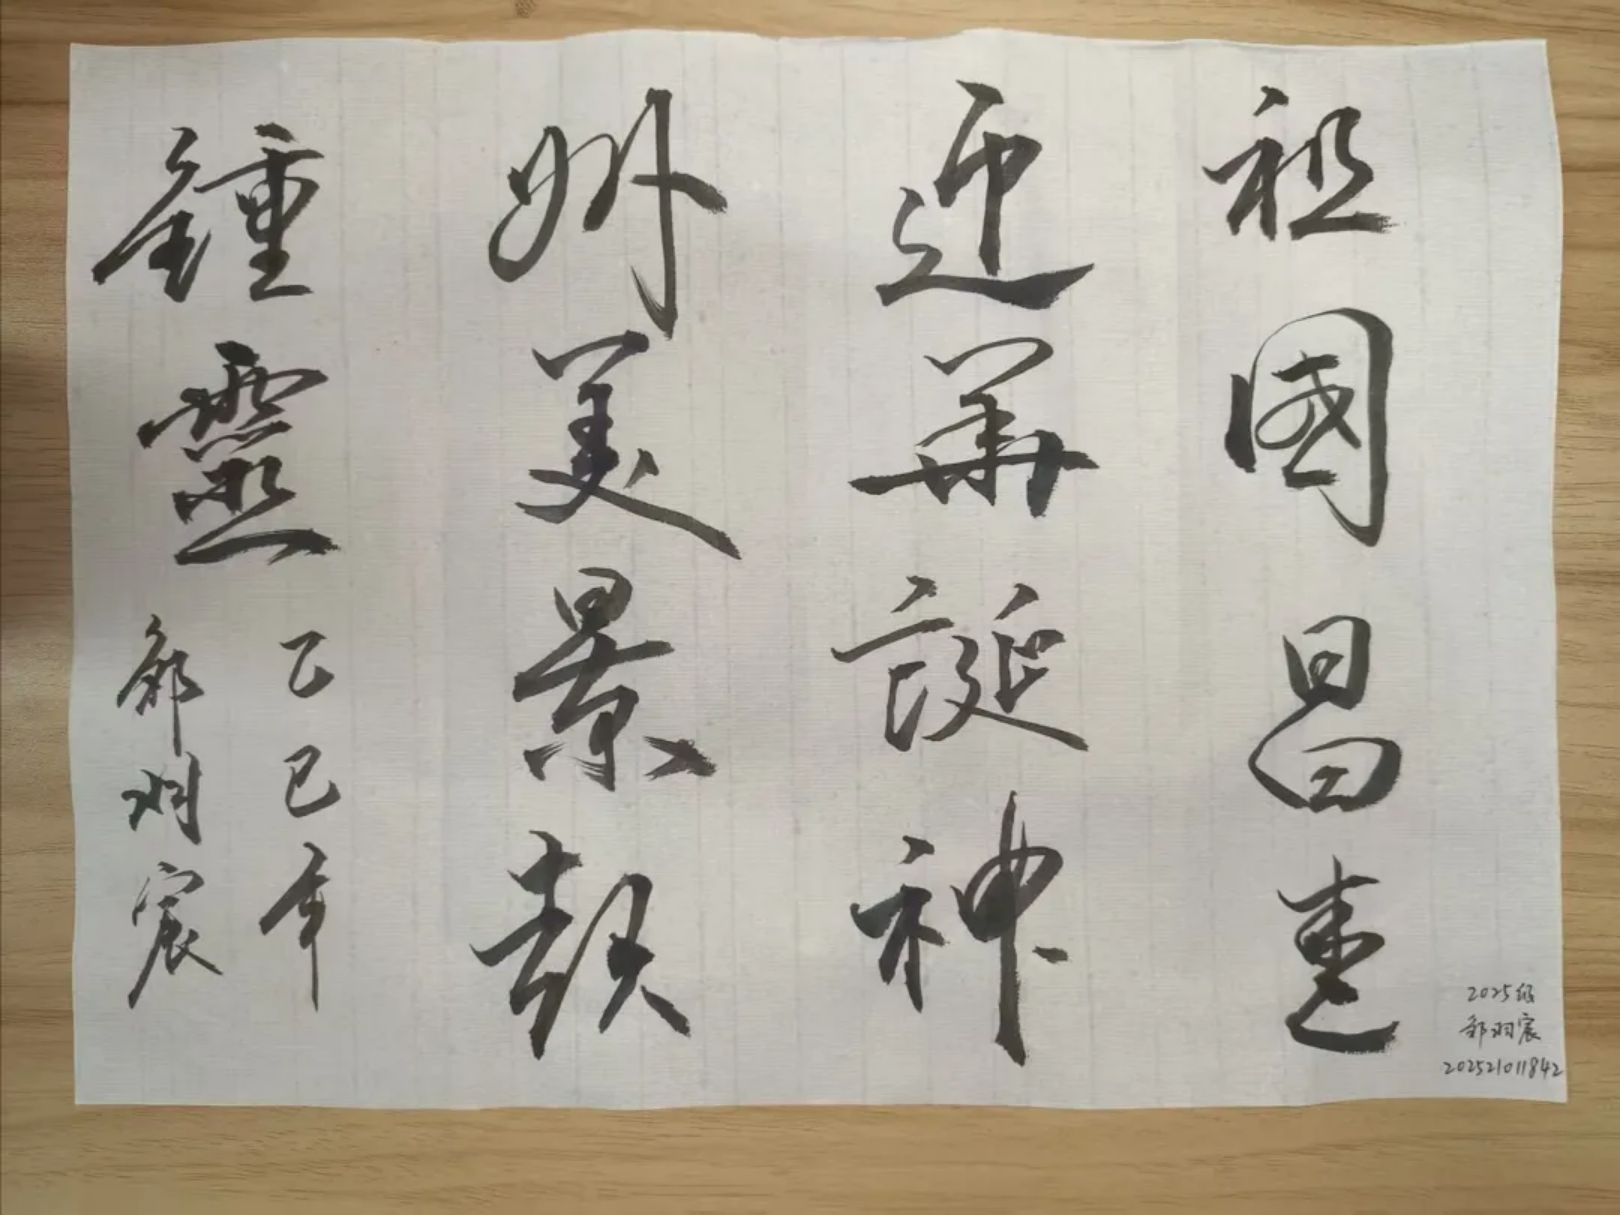 祖國昌
迎華誕神
州美景
鍾靈
乙巳年
邹羽宸
2025级
邹羽宸
202521011842